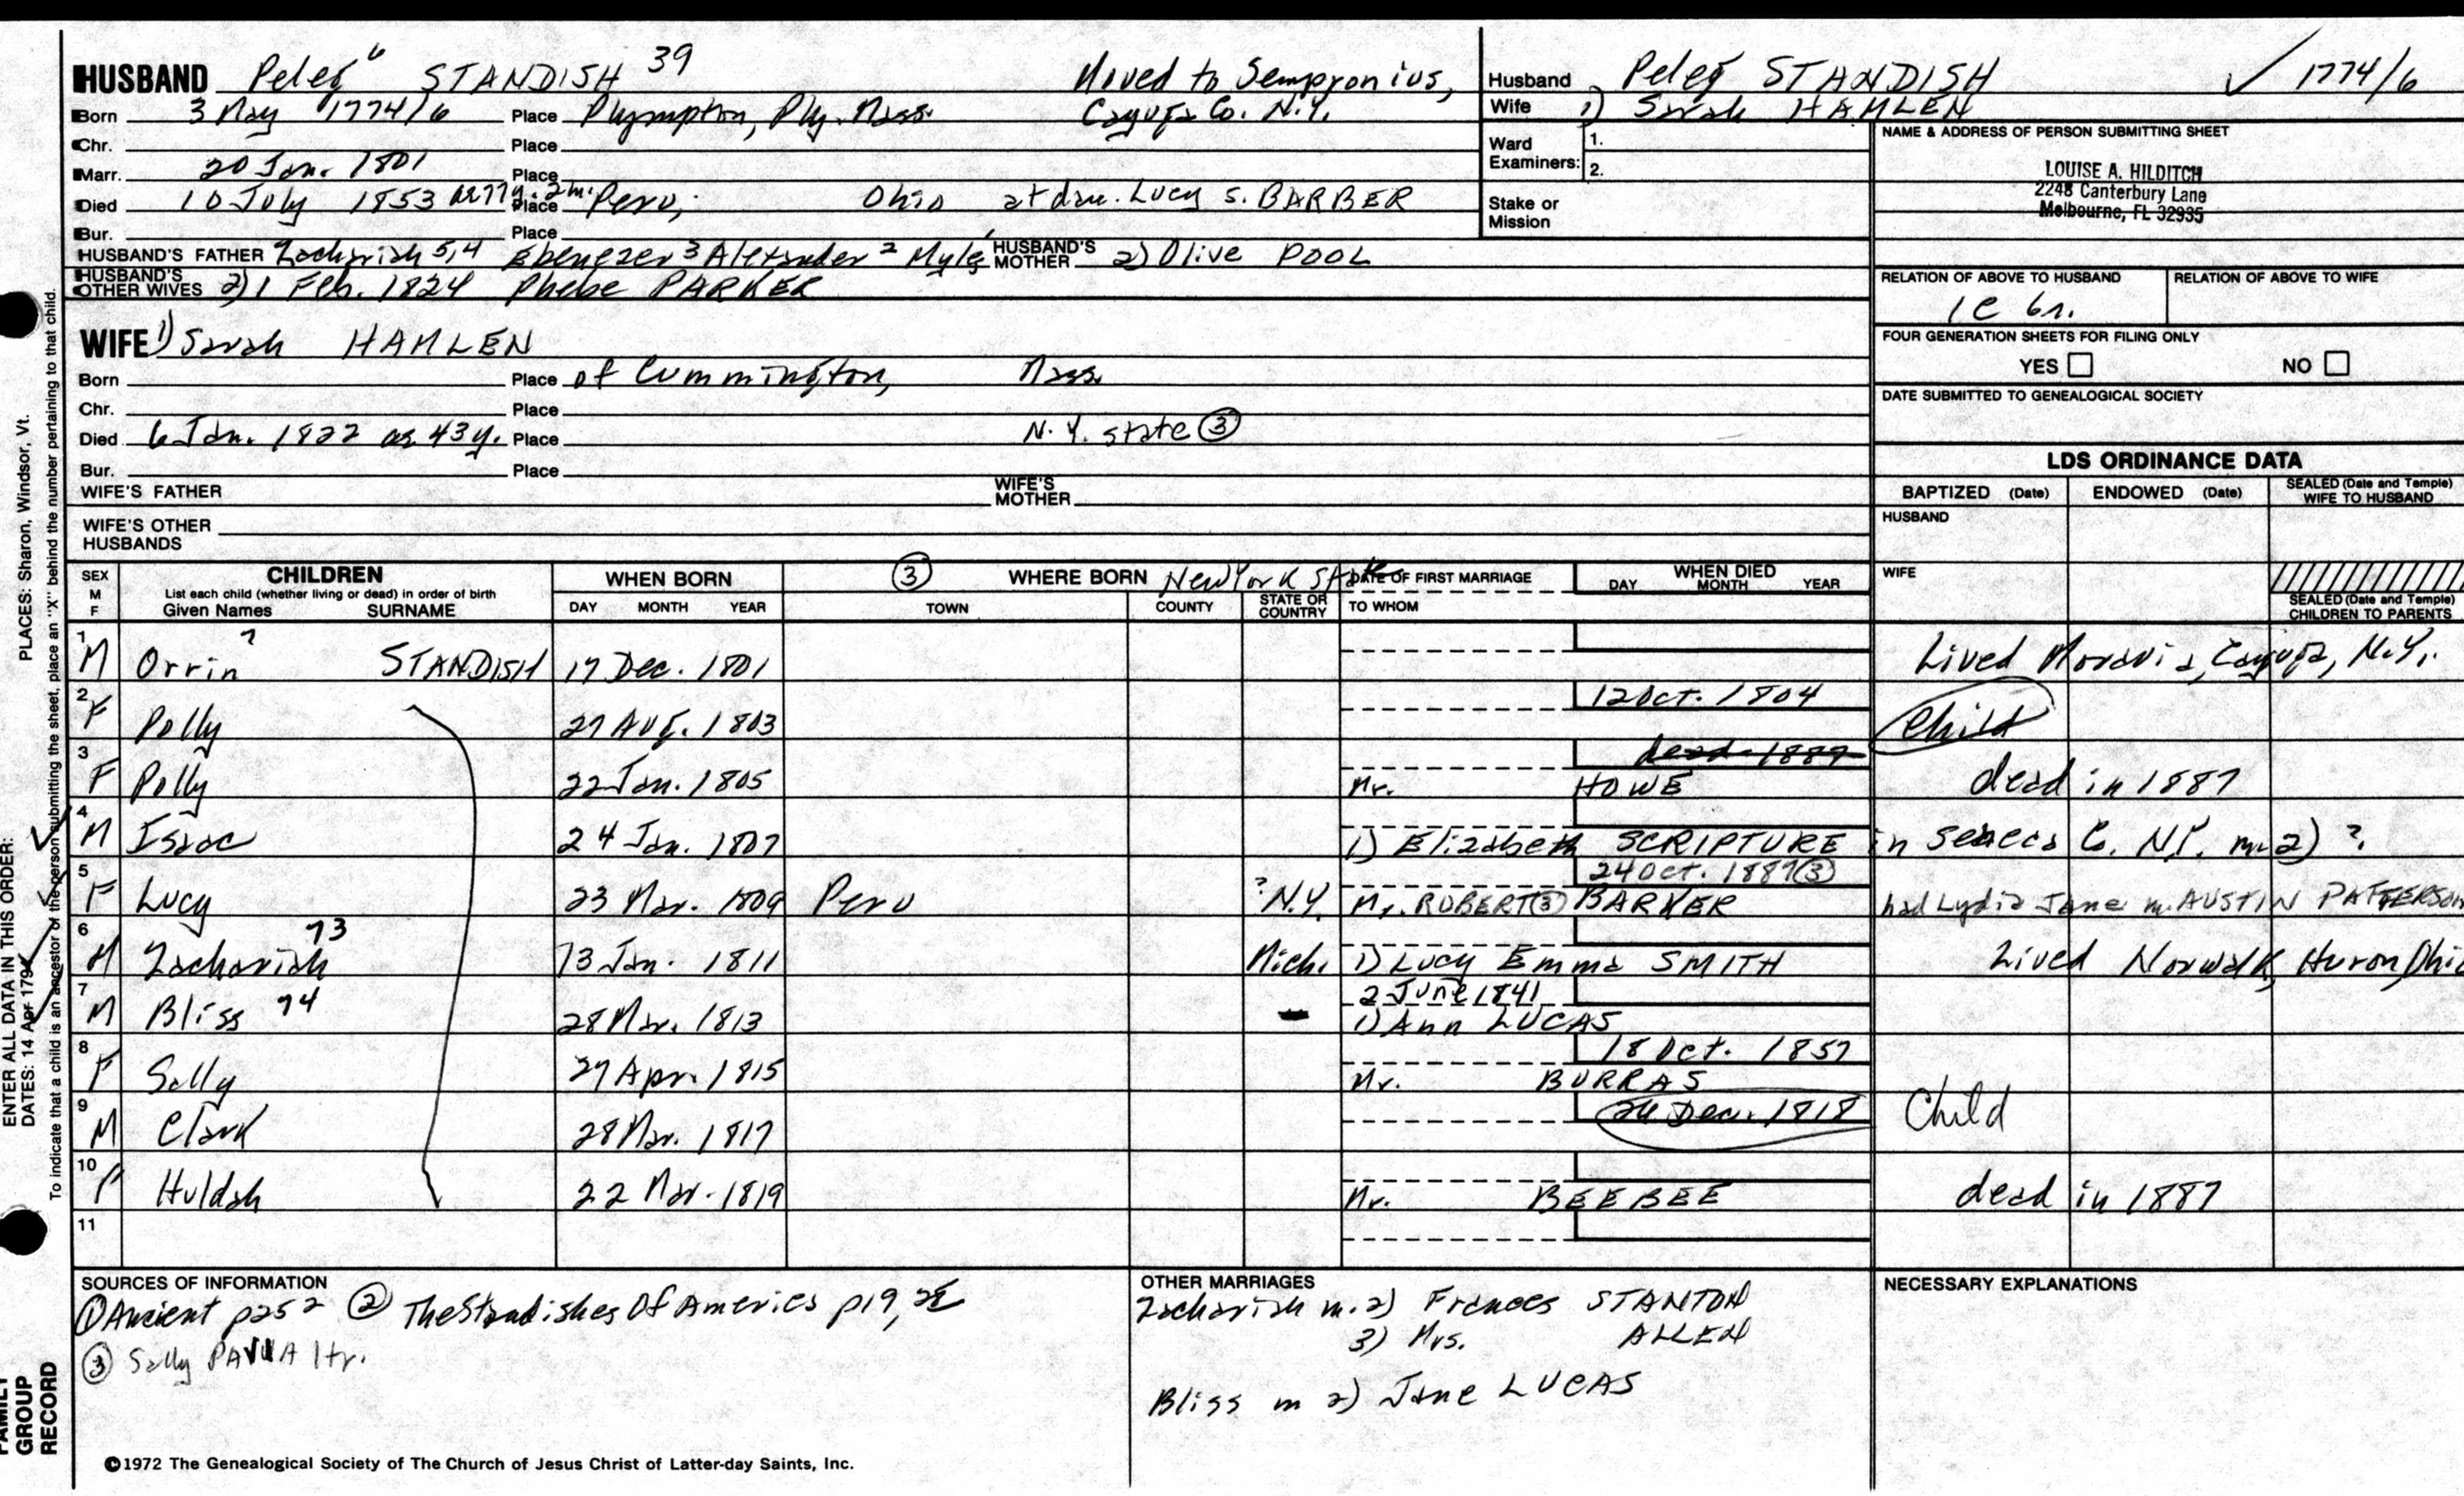 HUSBAND Peleg 6 STANDISH 39 Moved to Sempronius,
Born 3 May 1774/6 Place Plympton, Ply. Mass. Cayuga Co. N.Y.
Chr. Place
Marr. 20 Jan. 1801 Place
Died 10 July 1853 ae 77y. 2m. Place Peru, Ohio at dau. Lucy S. BARBER
Bur. Place
HUSBAND'S FATHER Zachariah 5,4 Ebenezer 3 Alexander 2 Myles HUSBAND'S MOTHER 2) Olive POOL
HUSBAND'S OTHER WIVES 2) 1 Feb. 1824 Phebe PARKER
Husband Peleg STANDISH ✓ 1774/6
Wife 1) Sarah HAMLEN
Ward Examiners: 1.
2.
Stake or Mission
NAME & ADDRESS OF PERSON SUBMITTING SHEET
LOUISE A. HILDITCH
2248 Canterbury Lane
Melbourne, FL 32935
RELATION OF ABOVE TO HUSBAND RELATION OF ABOVE TO WIFE
1c 6r.
FOUR GENERATION SHEETS FOR FILING ONLY
YES NO
DATE SUBMITTED TO GENEALOGICAL SOCIETY
WIFE 1) Sarah HAMLEN
Born Place of Cummington, Mass.
Chr. Place
Died 6 Jan. 1822 ae 43y. Place N.Y. state ③
Bur. Place
WIFE'S FATHER WIFE'S MOTHER
WIFE'S OTHER HUSBANDS
LDS ORDINANCE DATA
BAPTIZED (Date) ENDOWED (Date) SEALED (Date and Temple) WIFE TO HUSBAND
HUSBAND
WIFE
SEALED (Date and Temple) CHILDREN TO PARENTS
SEX M F CHILDREN WHEN BORN ③ WHERE BORN New York State DATE OF FIRST MARRIAGE WHEN DIED
List each child (whether living or dead) in order of birth
Given Names SURNAME DAY MONTH YEAR TOWN COUNTY STATE OR COUNTRY TO WHOM DAY MONTH YEAR
1 M Orrin 7 STANDISH 17 Dec. 1801 Lived Moravia, Cayuga, N.Y.
2 F Polly 27 Aug. 1803 12 Oct. 1804 Child
3 F Polly 22 Jan. 1805 Mr. HOWE dead 1887 dead in 1887
4 M Isaac 24 Jan. 1807 1) Elizabeth SCRIPTURE in Seneca Co. N.Y. m 2) ?
5 F Lucy 23 Mar. 1809 Peru ?N.Y. 24 Oct. 1887 ③ Mr. ROBERT ③ BARKER had Lydia Jane m. AUSTIN PATTERSON
6 M Zachariah 73 13 Jan. 1811 Mich. 1) Lucy Emma SMITH Lived Norwalk, Huron, Ohio
7 M Bliss 74 28 Mar. 1813 2 June 1841 1) Ann LUCAS
8 F Sally 27 Apr. 1815 18 Oct. 1857 Mr. BURRAS
9 M Clark 28 Mar. 1817 24 Dec. 1818 Child
10 F Huldah 22 Mar. 1819 Mr. BEEBEE dead in 1887
11
SOURCES OF INFORMATION
① Ancient p252 ② The Standishes Of America p19,
③ Sally ltr.
OTHER MARRIAGES
Zachariah m. 2) Frances STANTON
3) Mrs. ALLEN
Bliss m 2) Jane LUCAS
NECESSARY EXPLANATIONS
©1972 The Genealogical Society of The Church of Jesus Christ of Latter-day Saints, Inc.
ENTER ALL DATA IN THIS ORDER:
PLACES: Sharon, Windsor, Vt.
DATES: 14 Apr 1794
To indicate that a child is an ancestor of the person submitting the sheet, place an "X" behind the number pertaining to that child.
FAMILY GROUP RECORD